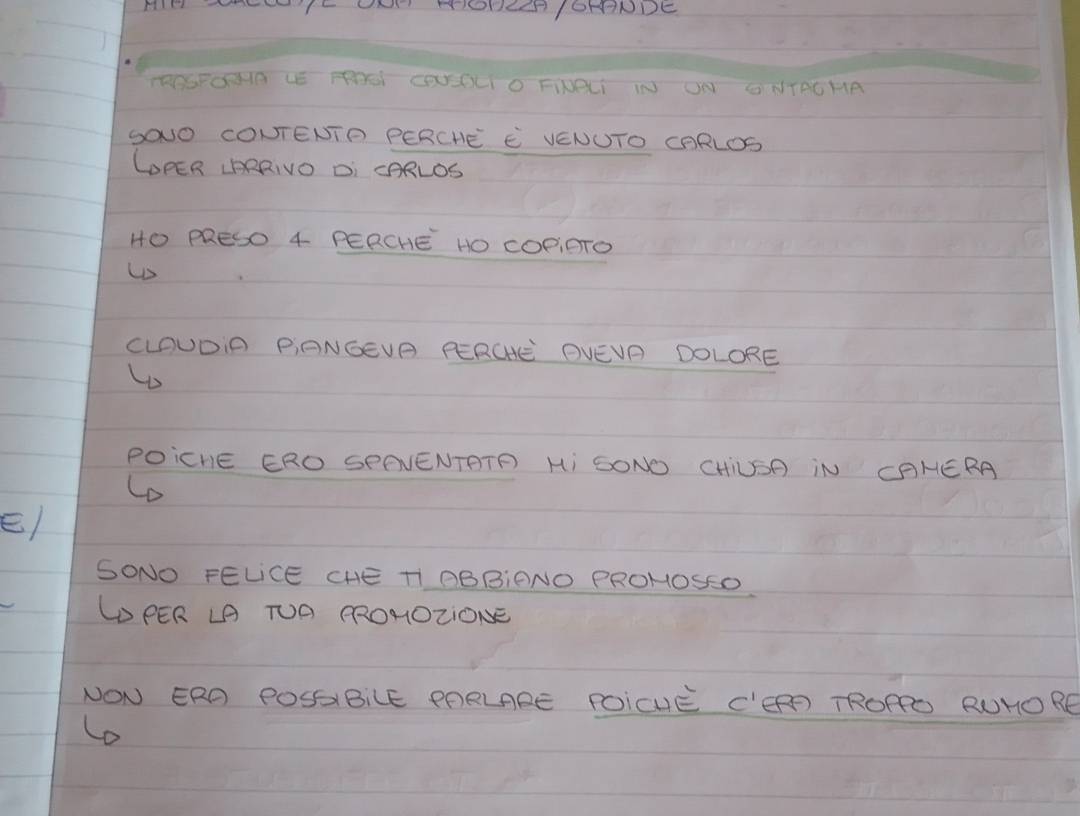 MIA SORELLA/È UNA RAGAZZA/GRANDE
TRASFORMA LE FRASI CAUSALI O FINALI IN UN SINTAGMA
SONO CONTENTA PERCHÈ È VENUTO CARLOS
↳PER L'ARRIVO DI CARLOS
HO PRESO 4 PERCHÈ HO COPIATO
↳
CLAUDIA PIANGEVA PERCHÈ AVEVA DOLORE
↳
POICHE ERO SPAVENTATA MI SONO CHIUSA IN CAMERA
↳
E/
SONO FELICE CHE TI ABBIANO PROMOSSO
↳ PER LA TUA PROMOZIONE
NON ERA POSSIBILE PARLARE POICHÈ C'ERA TROPPO RUMORE
↳